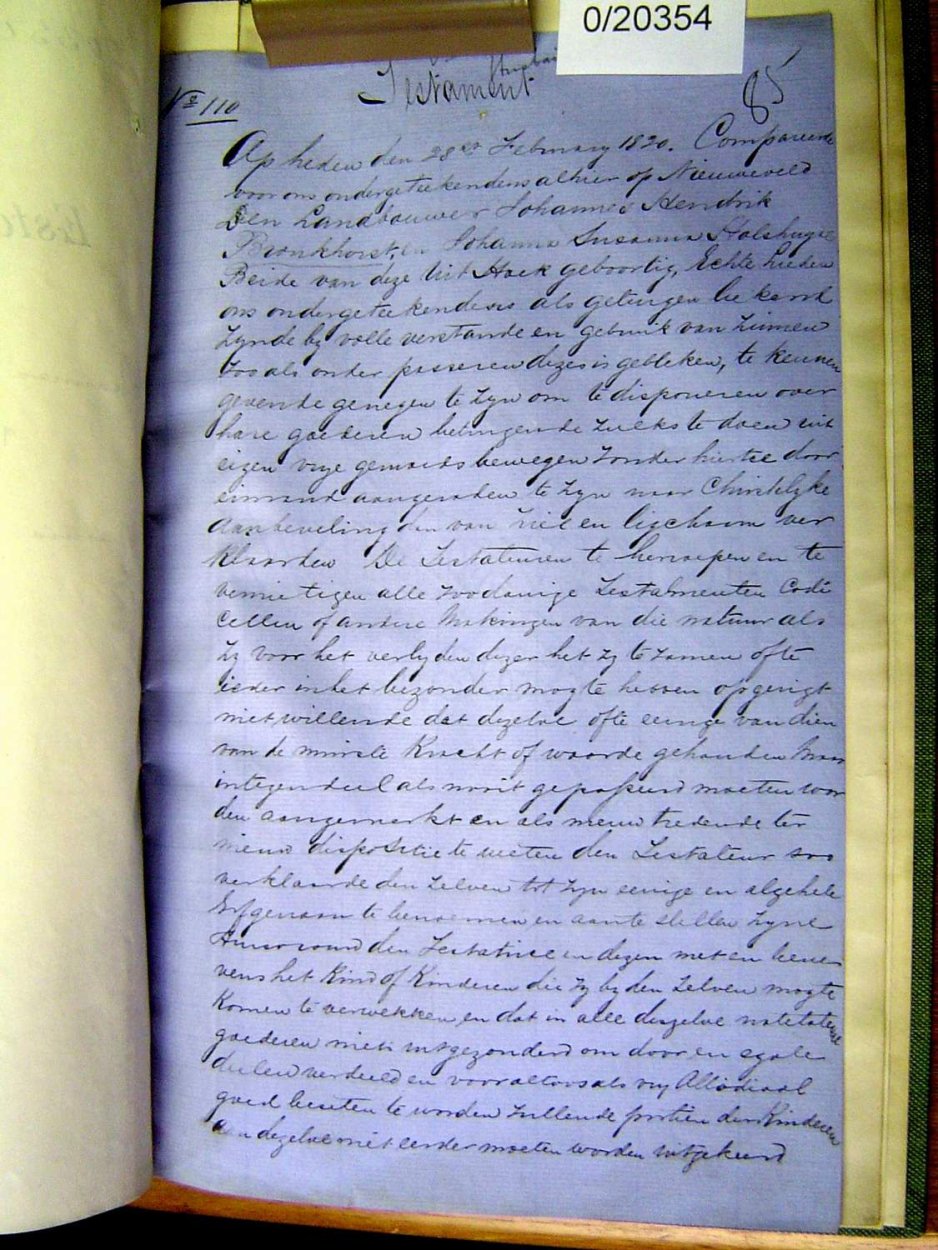 0/20354
Testament
85
No 110
Op heden den 28st February 1820. Compareerde
voor ons ondergeteekendens alhier op Nieuweveld
Den Landbouwer Johannes Hendrik
Bronkhorst, en Johanna Susanna
Beide van deze Uit Hoek geboortig, Echte Lieden
ons ondergeteekendens als getuigen bekend
zynde by volle verstande en gebruik van zinnen
zoo als onder passeren dezes is gebleken, te kennen
gevende genegen te zyn om te disponeren over
hare goederen betuigende zulks te doen uit
eigen vrye gemoeds bewegen zonder hiertoe door
eimand aangeraden te zyn naar Christelyke
aanbeveling den van ziel en ligchaam ver
klaarden De Testateuren te herroepen en te
vernietigen alle zoodanige Testamenten Codi
cellen of andere Makingen van die natuur als
zy voor het verlyden dezer het zy te zamen ofte
ieder in het bezonder mogte hebben opgerigt
niet willende dat dezelve ofte eenige van dien
van de minste Kracht of waarde gehouden Maar
integendeel als nooit gepasseerd moeten wor
den aangemerkt en als nieuw tredende ter
nieuw dispositie te weten den Testateur zoo
verklaarde den zelven tot zyn eenige en algehele
Erfgenaam te benoemen en aante stellen zyne
Huisvrouw den Testatrice in dezen met en bene
vens het Kind of Kinderen die zy by den Zelven mogte
Komen te verwekken, en dat in alle deszelve
goederen niets uitgezonderd om door en egale
deelen verdeeld en voor altoos als vry Allodiaal
goed beseten te worden zullende portien der Kinderen
aan dezelve niet eerder moeten worden uitgekeerd